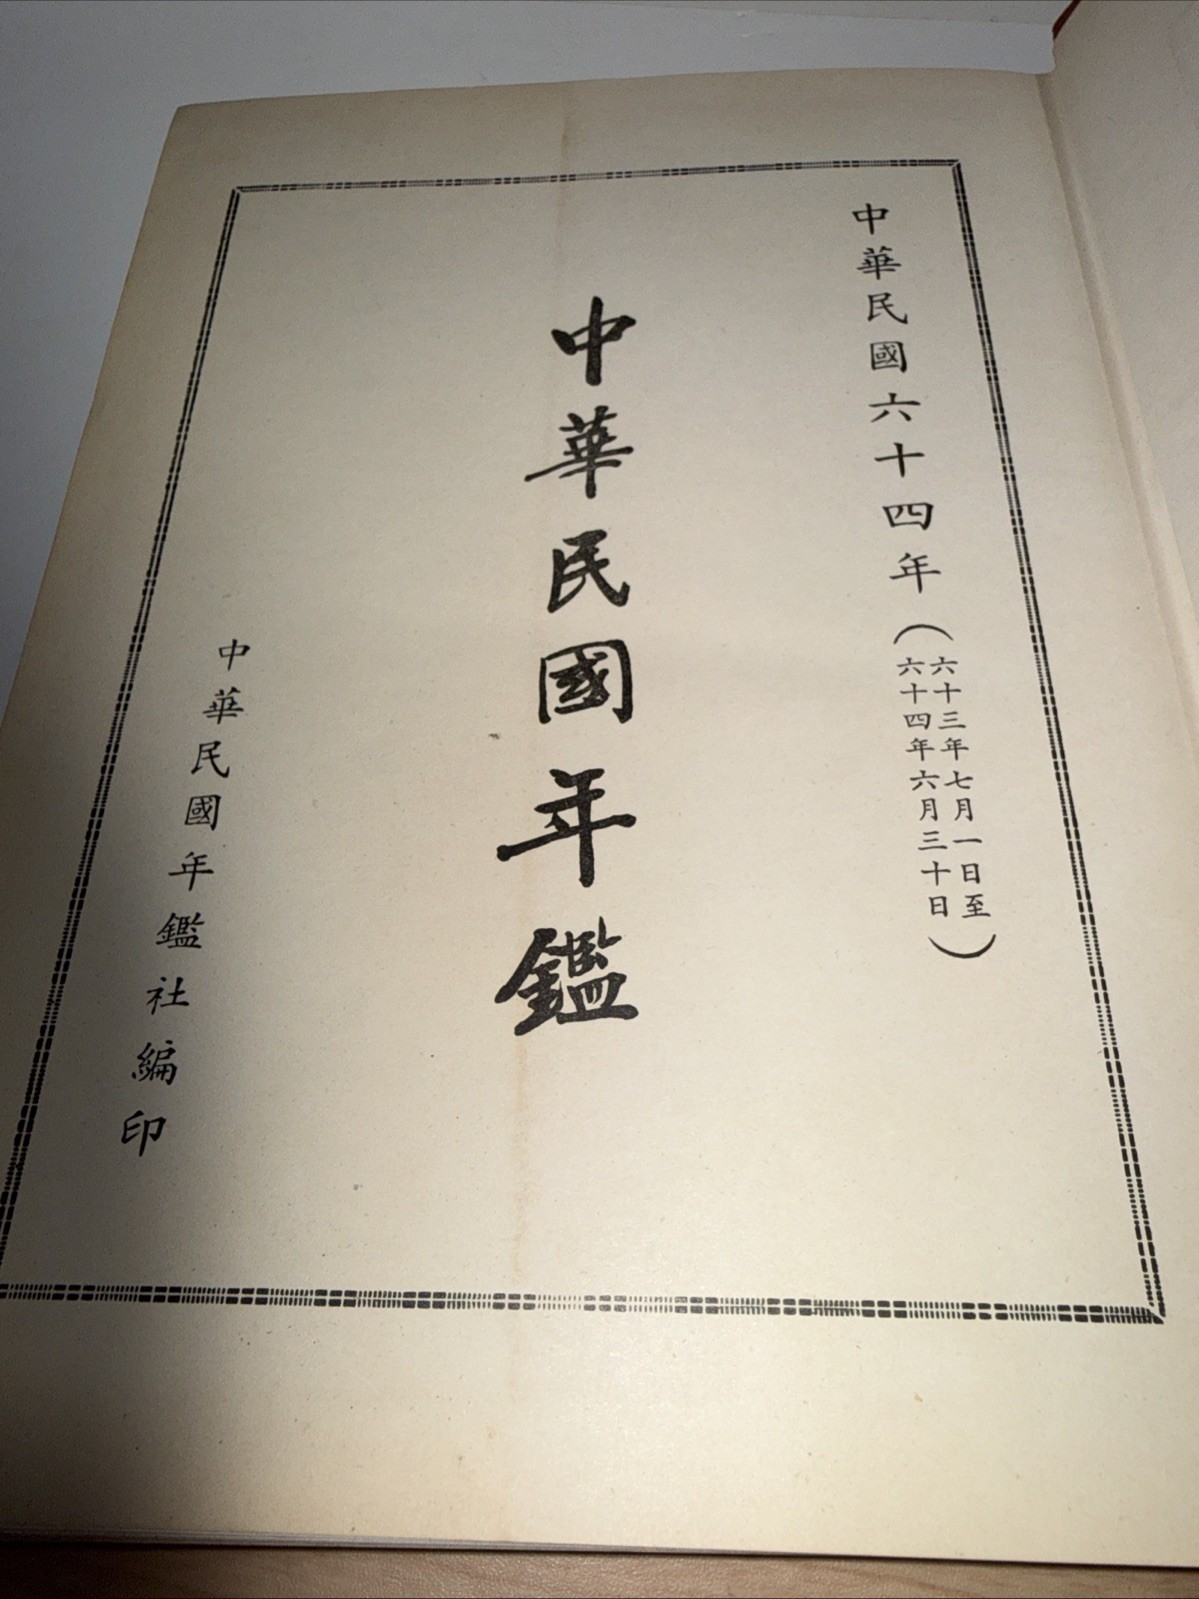 中華民國六十四年（六十三年七月一日至
六十四年六月三十日）
中華民國年鑑
中華民國年鑑社編印